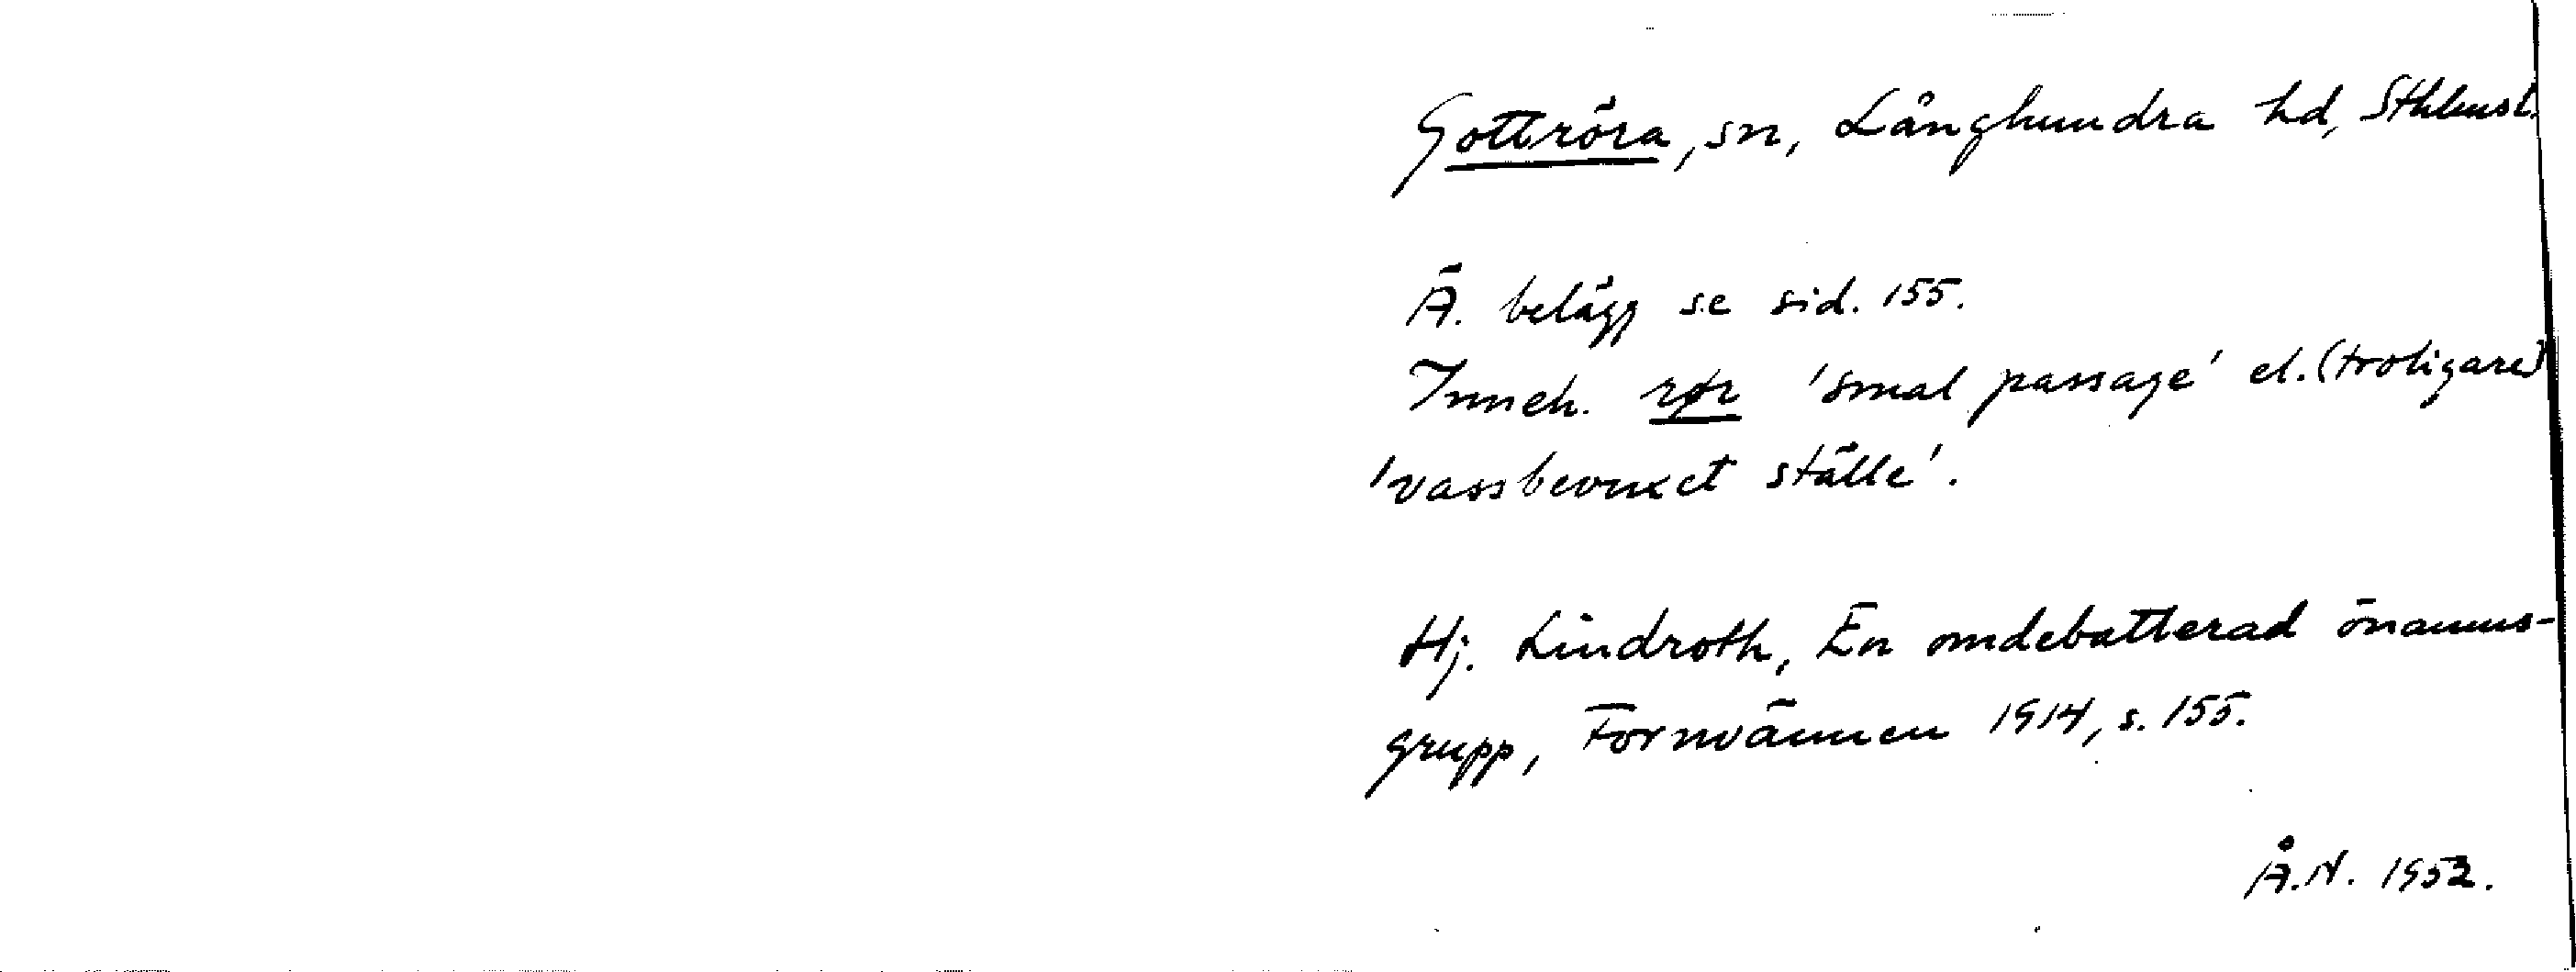 Gottröra, sn, Långhundra hd, Sthlmsl.
Ä. belägg se sid. 155.
Inneh. rør 'smal passage' el. (troligare)
'vassbevuxet ställe'.
Hj. Lindroth, En omdebatterad önamns-
grupp, Fornvännen 1914, s. 155.
Å.N. 1952.